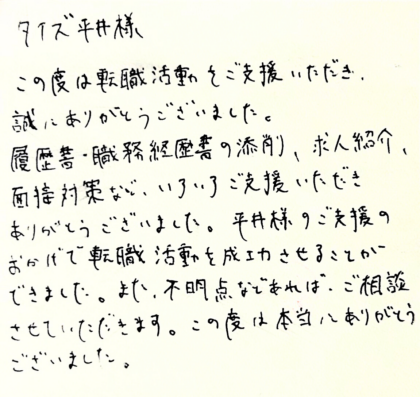 タイズ平井様、
この度は転職活動をご支援いただき、
誠にありがとうございました。
履歴書・職務経歴書の添削、求人紹介、
面接対策など、いろいろご支援いただき
ありがとうございました。平井様のご支援の
おかげで転職活動を成功させることが
できました。また、不明点などあれば、ご相談
させていただきます。この度は本当にありがとう
ございました。